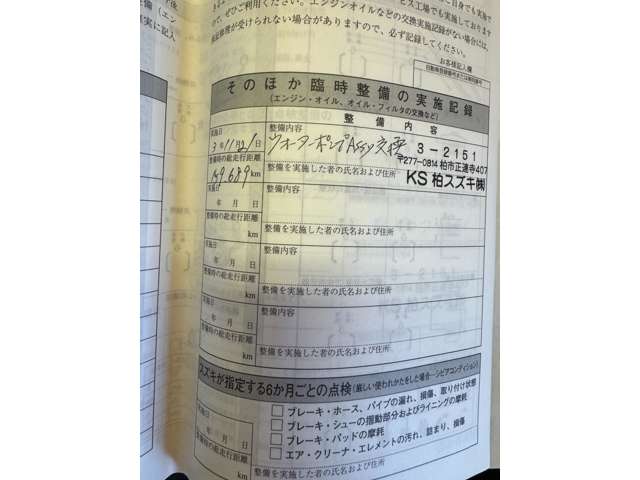 て、ぜひご利用ください。エンジンオイルなどの交換実施記録がない場合には、
保証修理が受けられない場合がありますので、必ず記録してください。
お客様記入欄
自動車登録番号または車両番号
そのほか臨時整備の実施記録
(エンジン・オイル、オイル・フィルタの交換など)
整備内容
実施日
3年11月21日
整備内容
ウォーターポンプAssy交換
3-2151
〒277-0814 柏市正連寺407
KS 柏スズキ㈱
整備時の総走行距離
159,689km
整備を実施した者の氏名および住所
実施日
年 月 日
整備内容
整備時の総走行距離
km
整備を実施した者の氏名および住所
実施日
年 月 日
整備内容
整備時の総走行距離
km
整備を実施した者の氏名および住所
実施日
年 月 日
整備内容
整備時の総走行距離
km
整備を実施した者の氏名および住所
スズキが指定する6か月ごとの点検(厳しい使われかたをした場合―シビアコンディション)
実施日
年 月 日
□ ブレーキ・ホース、パイプの漏れ、損傷、取り付け状態
□ ブレーキ・シューの摺動部分およびライニングの摩耗
□ ブレーキ・パッドの摩耗
□ エア・クリーナ・エレメントの汚れ、詰まり、損傷
整備時の総走行距離
km
整備を実施した者の氏名および住所